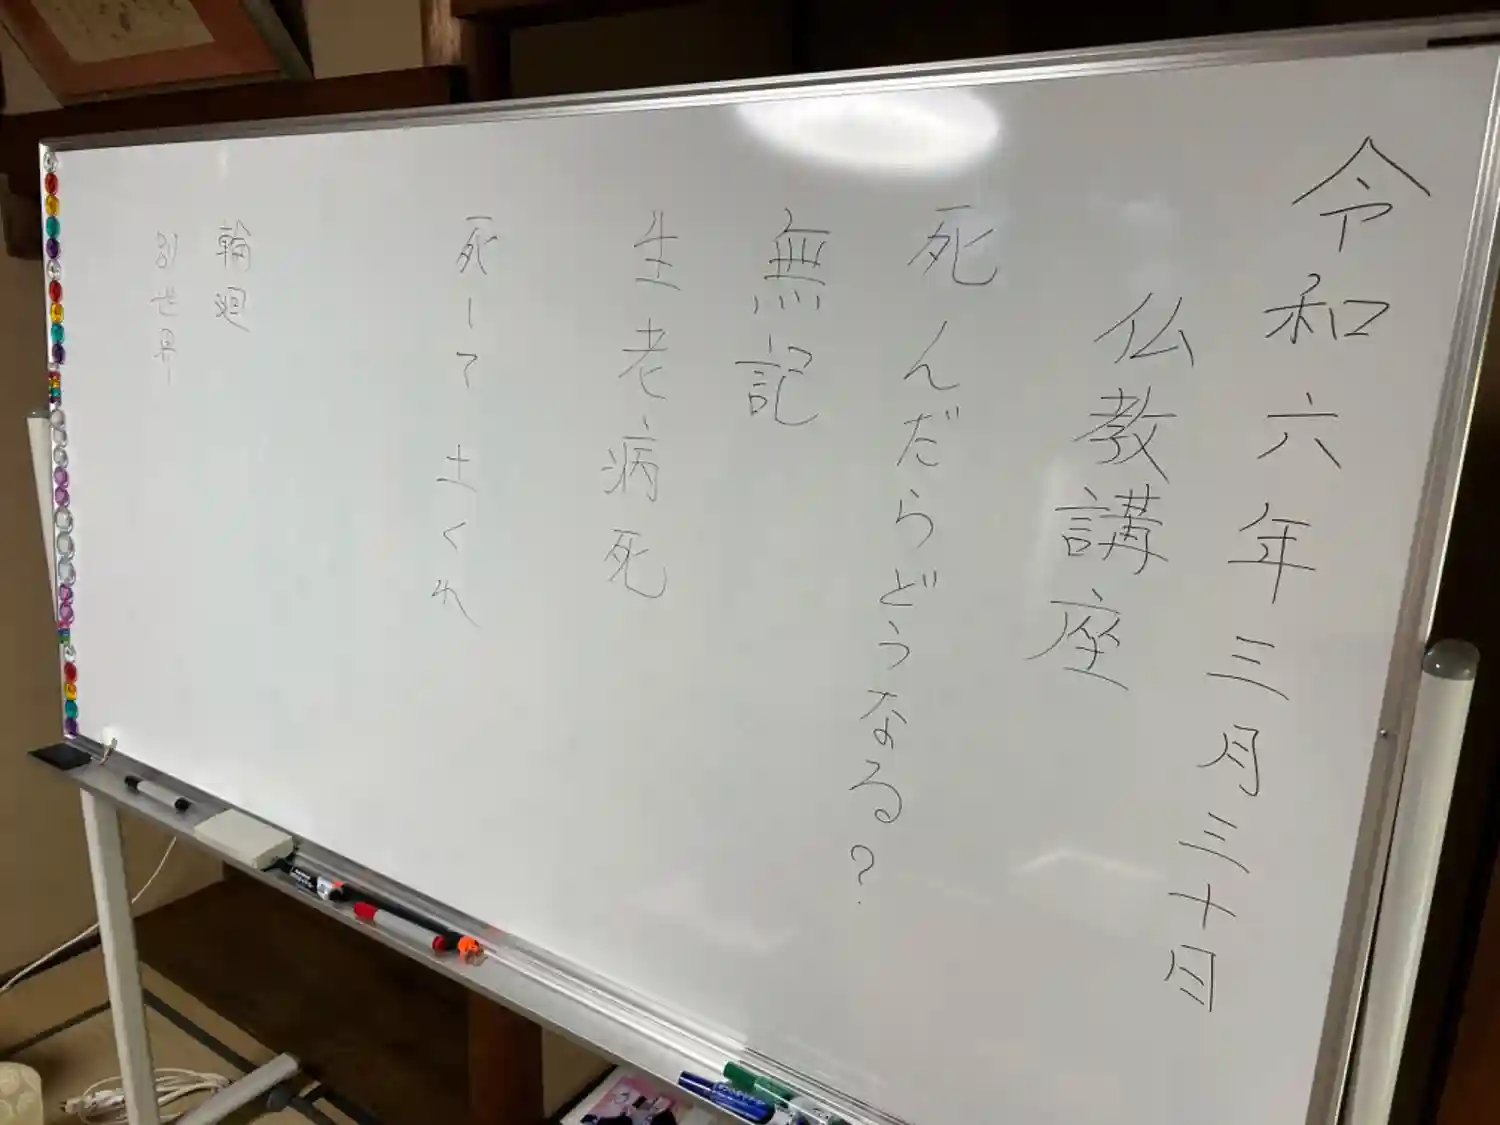 令和六年三月三十日
仏教講座
死んだらどうなる?
無記
生老病死
死して土くれ
輪廻
別世界